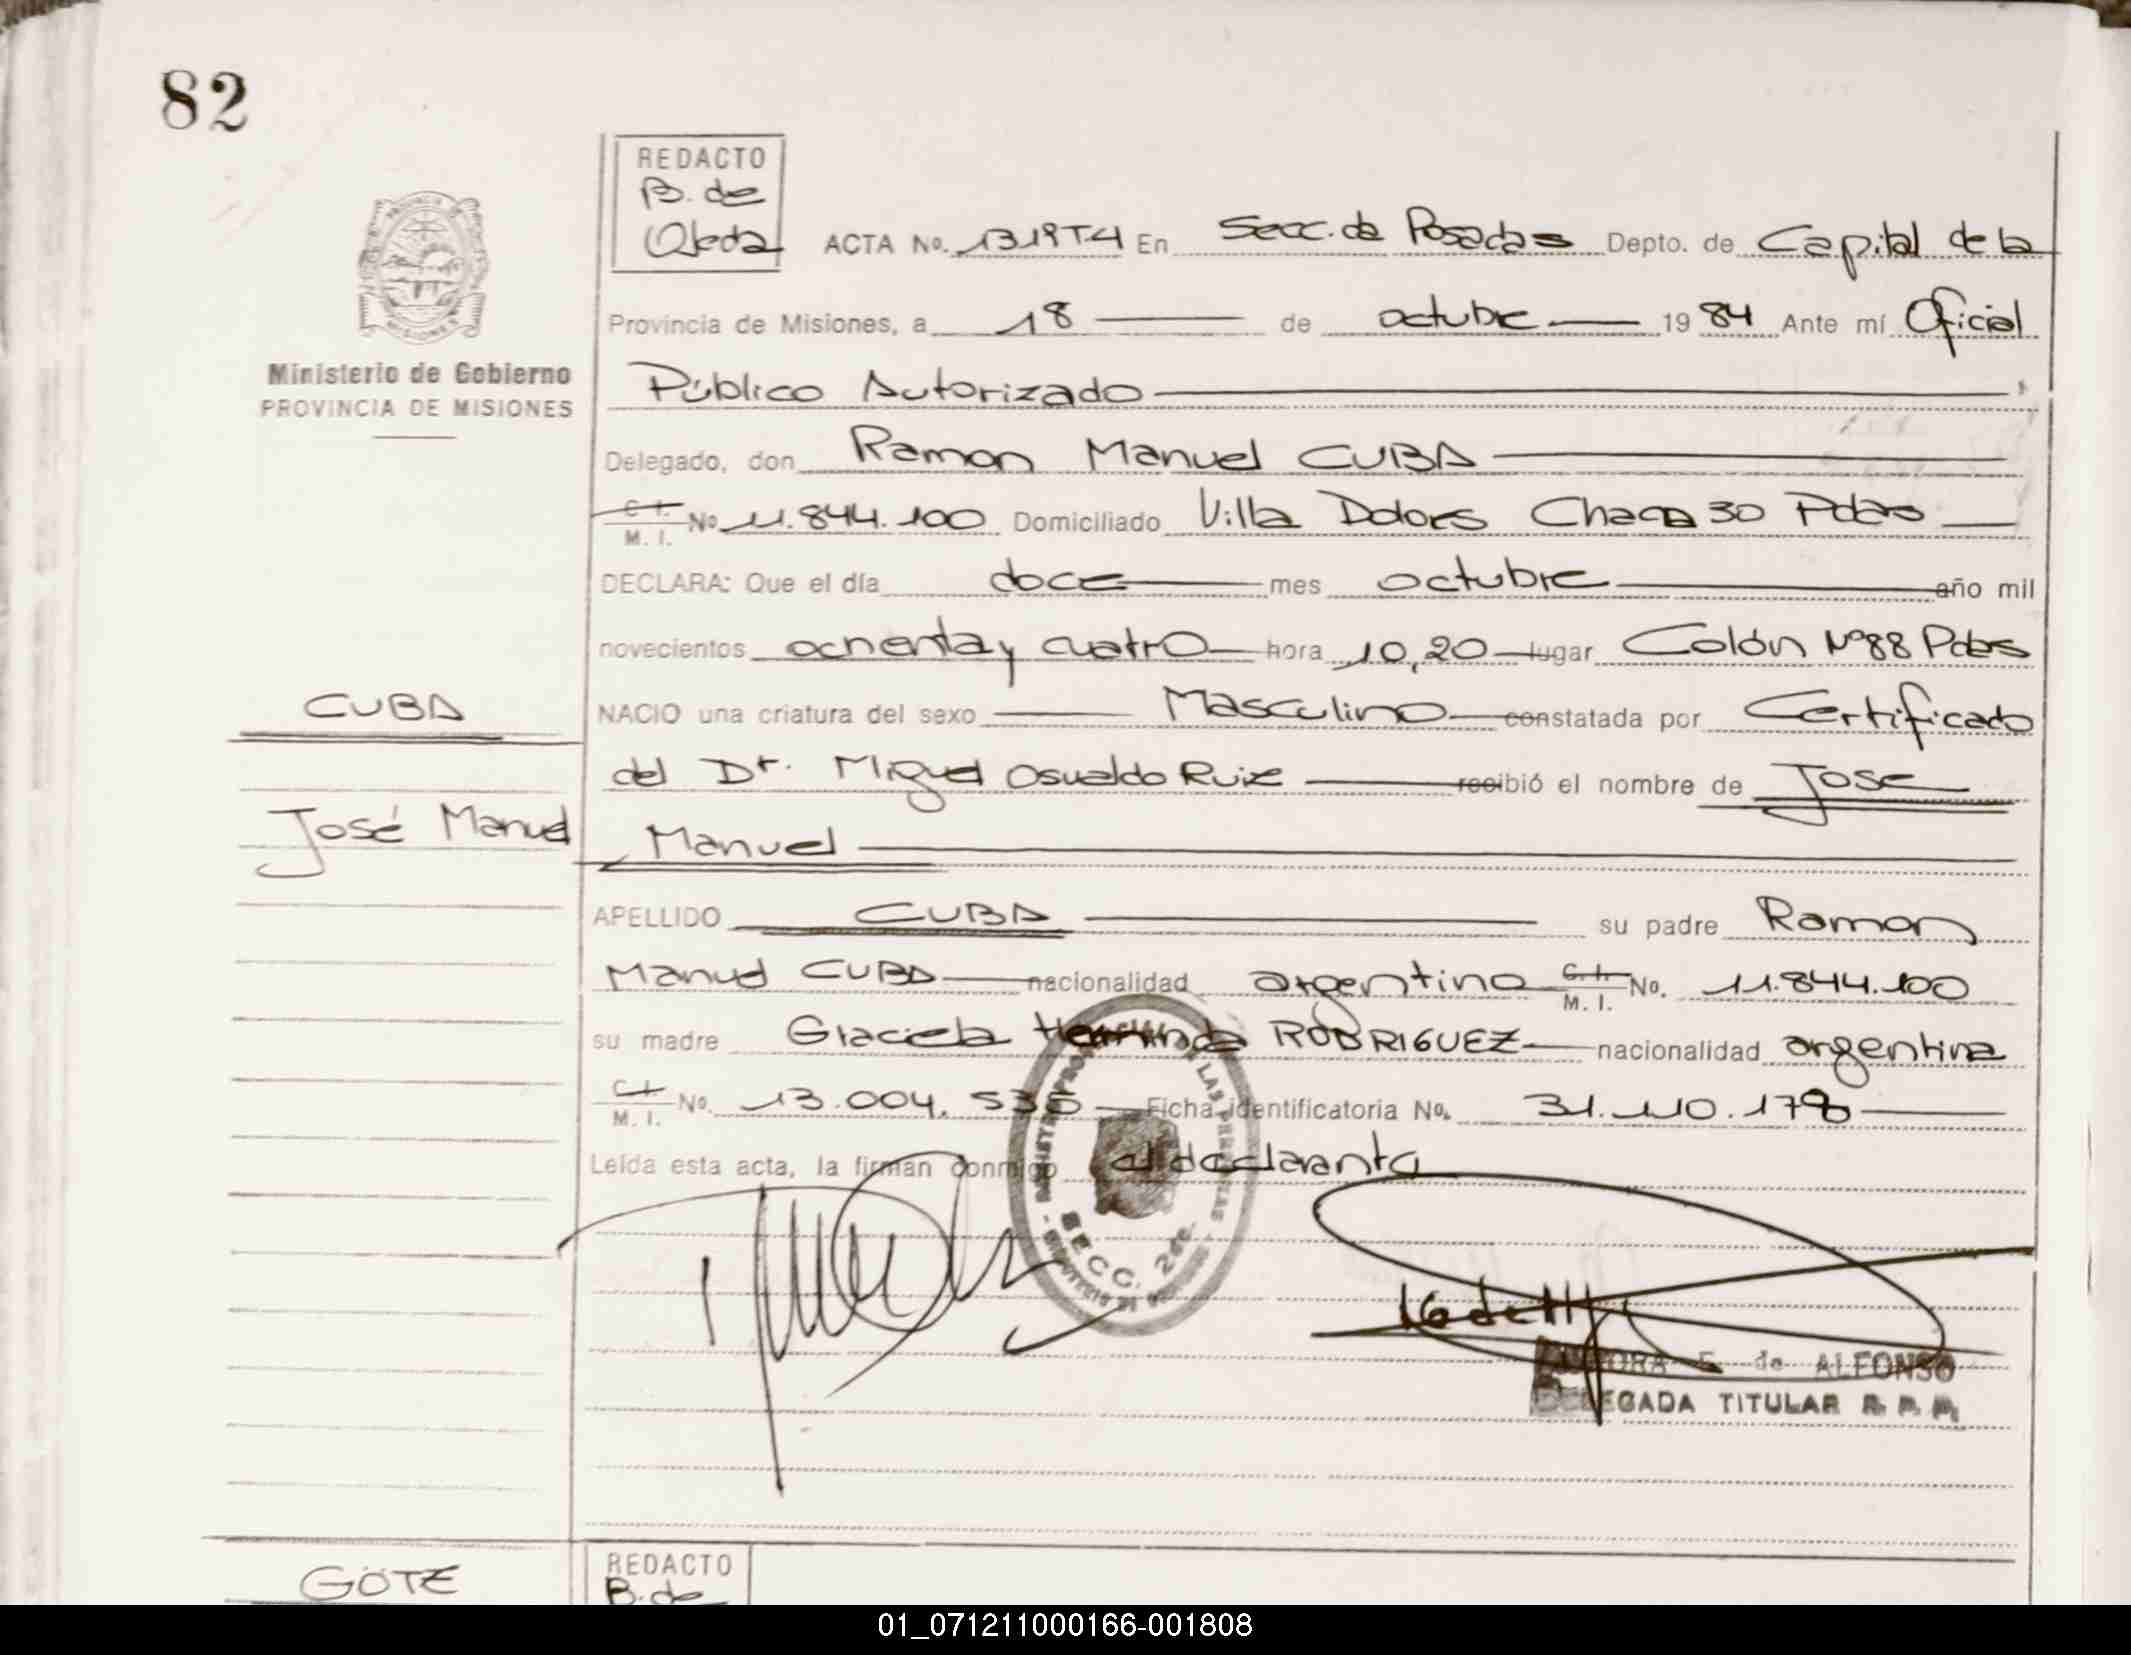 82
REDACTO
B. de
Ojeda
ACTA No. 1319T4 En Secc. de Posadas Depto. de Capital de la
Provincia de Misiones, a 18 de octubre 19 84 Ante mí Oficial
Ministerio de Gobierno
PROVINCIA DE MISIONES
Público Autorizado
Delegado, don Ramon Manuel CUBA
C.I.
M. I. No 11.844.100 Domiciliado Villa Dolores Chaca 30 Pdas
DECLARA: Que el día doce mes octubre año mil
novecientos ochenta y cuatro hora 10,20 lugar Colón Nº88 Pdas
CUBA
NACIO una criatura del sexo Masculino constatada por Certificado
del Dr. Miguel Osvaldo Ruiz recibió el nombre de José
José Manuel
Manuel
APELLIDO CUBA su padre Ramon
Manuel CUBA nacionalidad argentino C.I.
M. I. No. 11.844.100
su madre Graciela RODRIGUEZ nacionalidad argentina
C.I.
M. I. No. 13.004.536 Ficha identificatoria No. 31.110.178
Leída esta acta, la firman conmigo el declarante
SECC. 2da.
de ALFONSO
DELEGADA TITULAR R. P. P.
GOTE
REDACTO
B. de
01_071211000166-001808